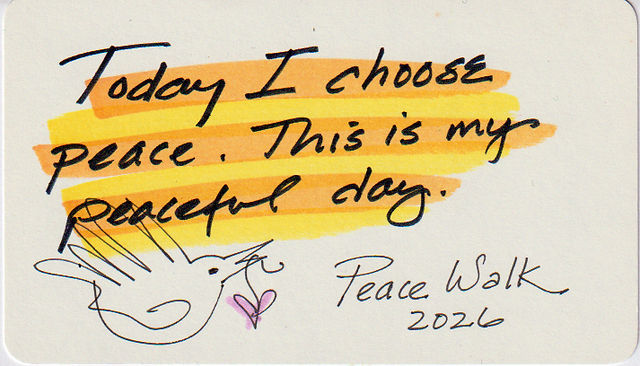 Today I choose
peace. This is my
peaceful day.
Peace Walk
2026